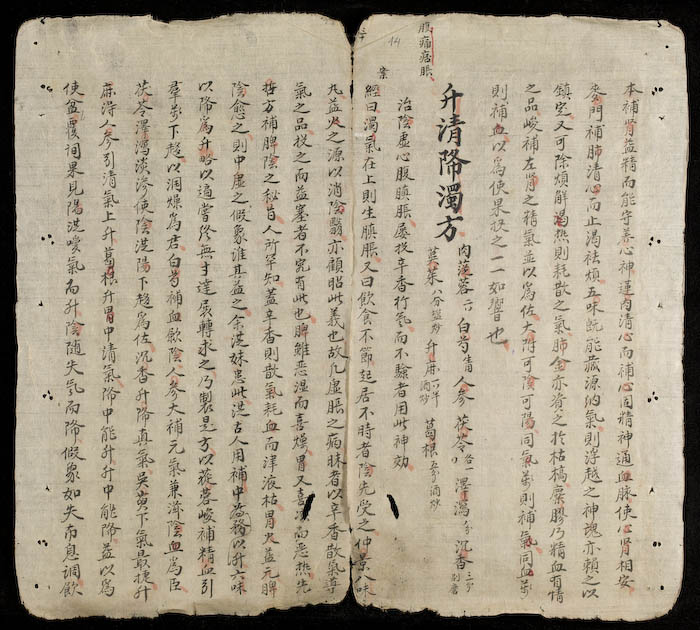 本補腎益精而能守善心神運肉清心而補心同精神通血脉使心腎相安
麥門補肺清心而止渴祛煩五味既能藏源納氣則浮越之神魂亦賴之以
鎮定又可除煩解渴热則耗散之氣肺金亦資之於枯槁麋膠乃精血有情
之品峻補左腎之精氣並以為佐大附可陰可陽同氣药則補氣同血药
則補血以為使果投之一一如響也
腹痛痞脹
案
44
升清降濁方
肉蓯蓉 白芍 人參 茯苓 澤瀉 沉香
吳茱 升麻 酒炒 葛根 酒炒
治陰虛心腹䐜脹屡投辛香行氣而不驗者用此神効
經曰濁氣在上則生䐜脹又曰飲食不節起居不時者陰先受之仲景八味
丸益火之源以消陰翳亦顧昭此義也故凡虛脹之病昧者以辛香散氣導
氣之品投之而益塞者不究有此也脾雖恶湿而喜燥胃又喜 而恶热先
方補脾陰之秘昔人所罕知蓋辛香則散氣耗血而津液枯胃火益元脾
陰愈 之則中虛之假象 其益之余 妹患此 古人用補中 以升六味
以降為升 以 當終無寸達展轉求之乃製是方以蓯蓉峻補精血引
羣药下趨以潤燥為君白芍補血歛陰人參大補元氣兼 陰血為臣
茯苓澤瀉淡滲使陰 陽下趨為佐沉香升降真氣吳茰下氣最捷升
麻得人參引清氣上升葛根升胃中清氣降中能升升中能降並以為
使 覆詞果見陽洗噯氣而升陰随失氣而降假象如失 息調飲